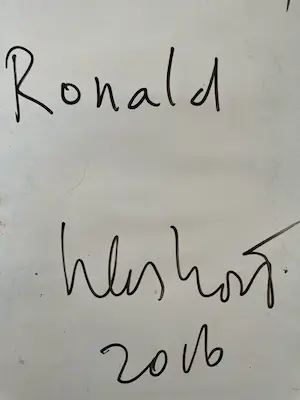 Ronald
2016